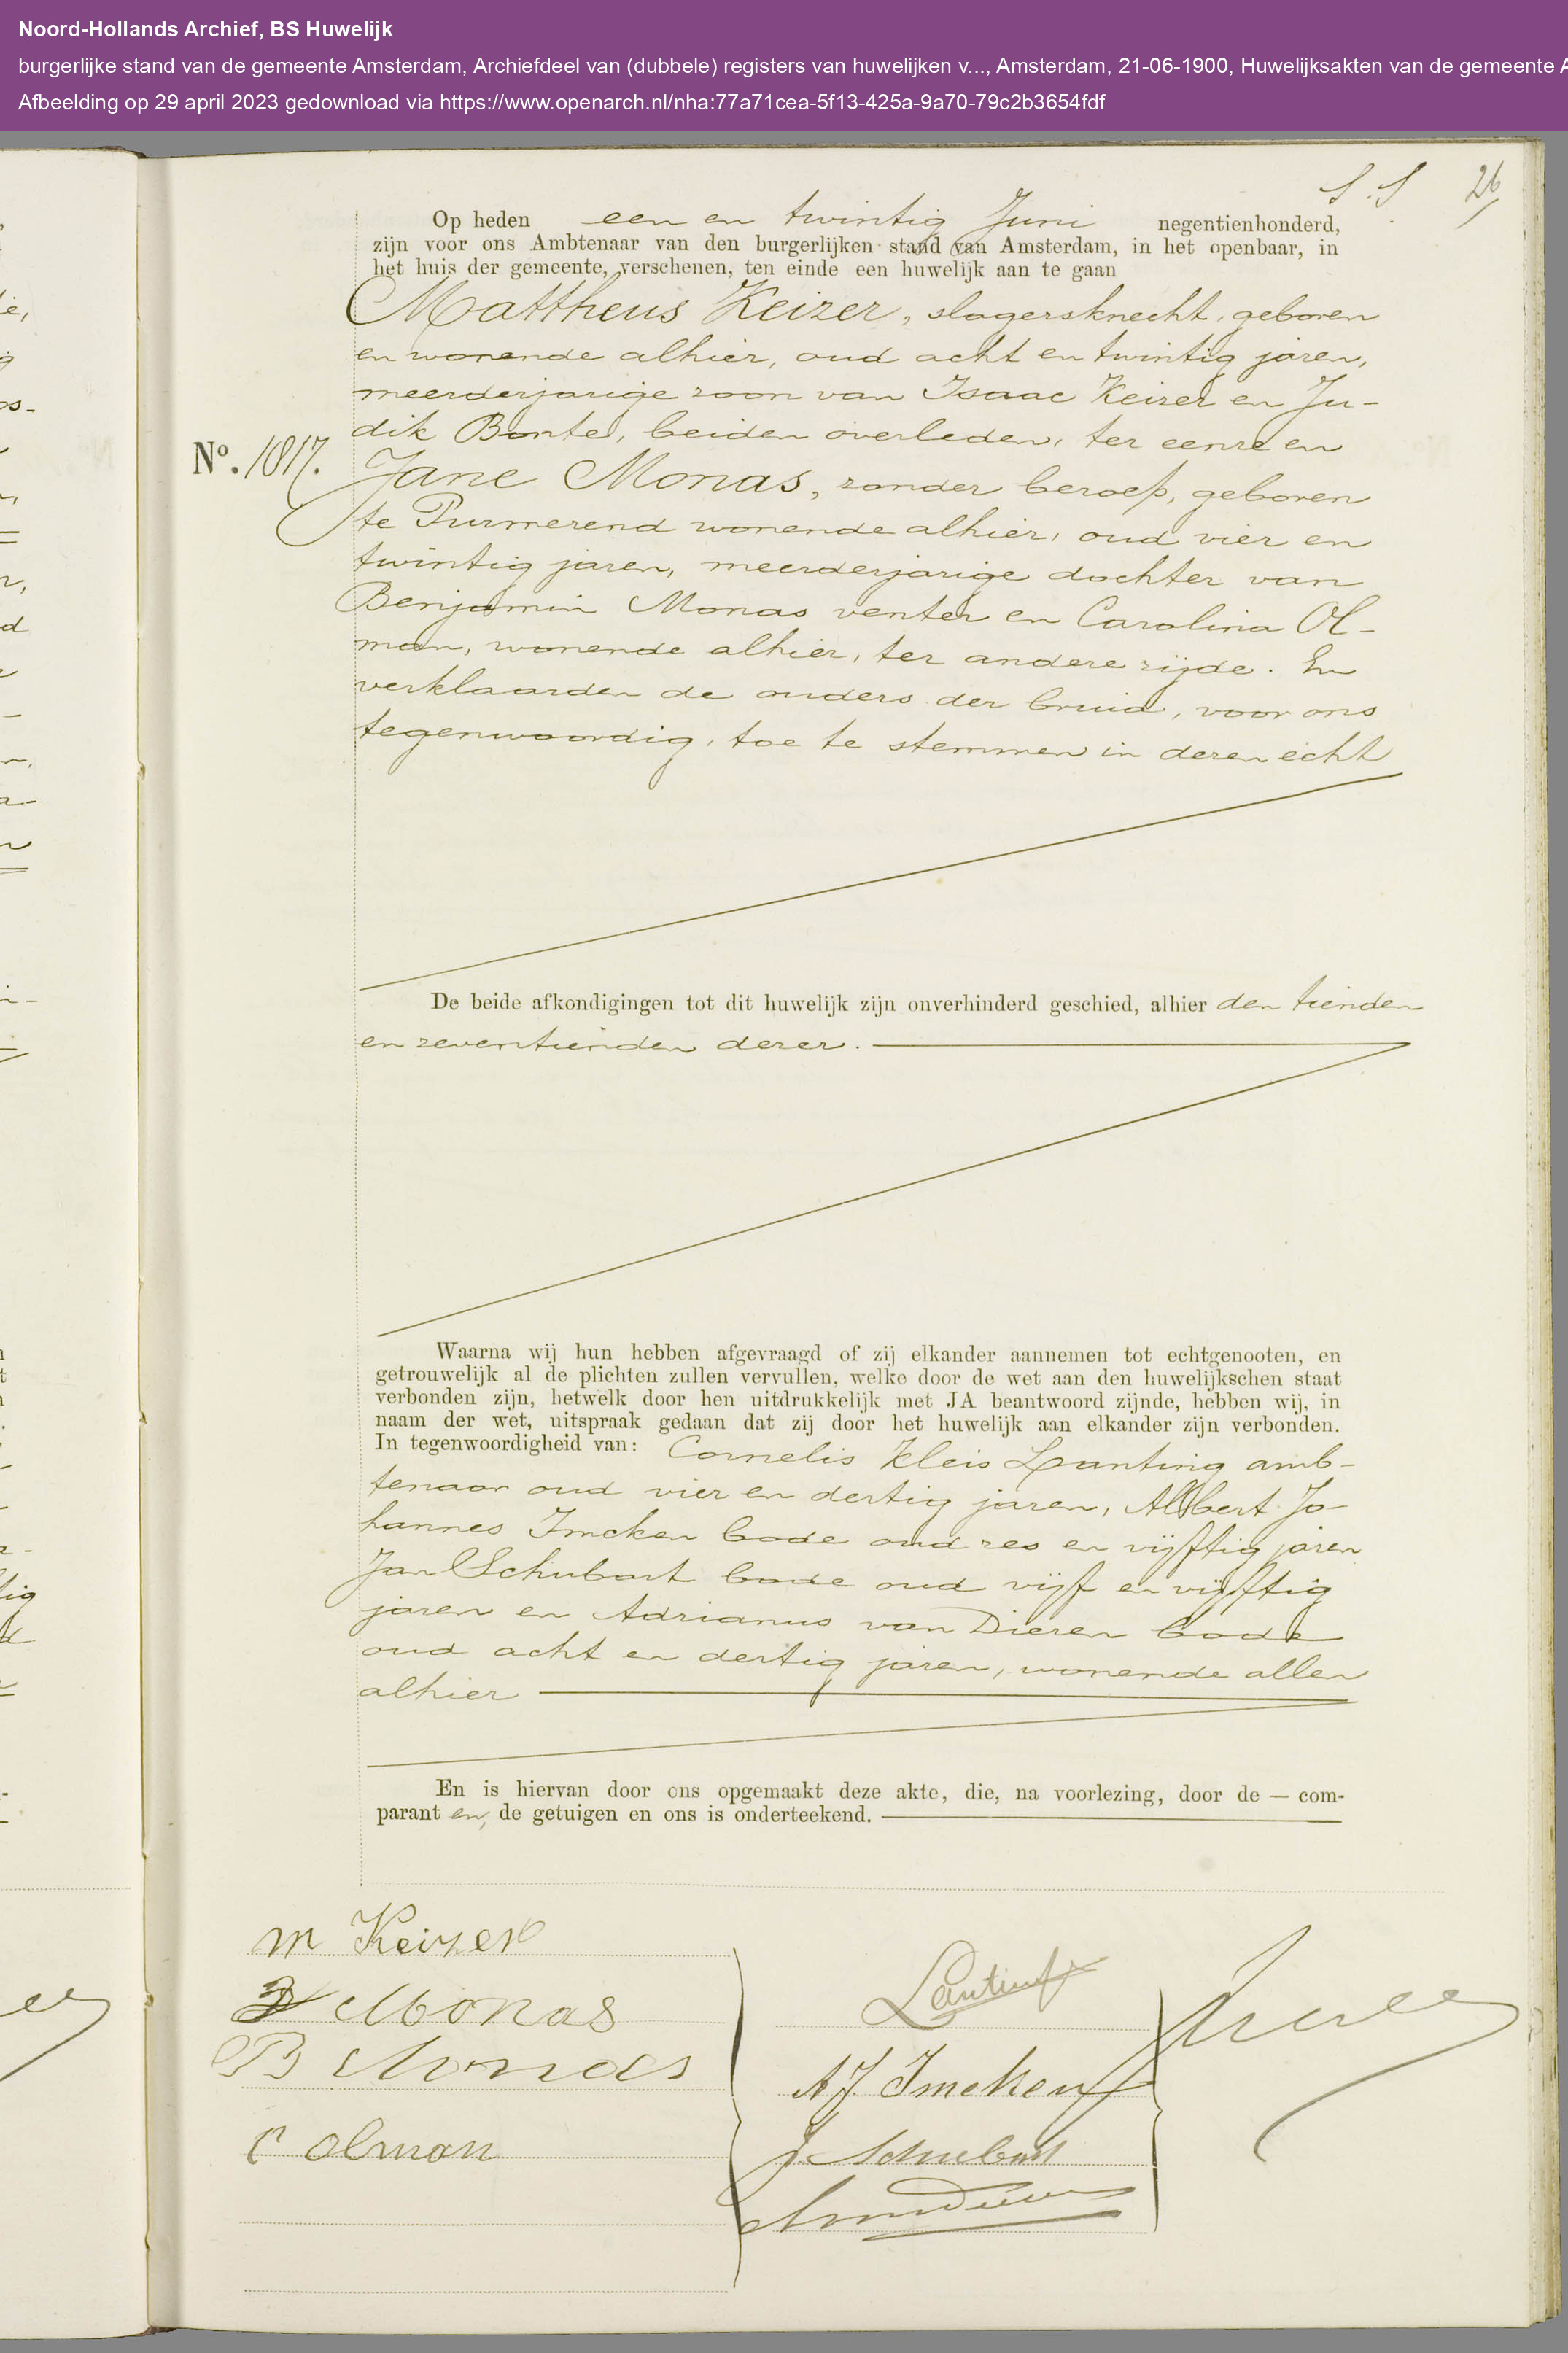 Noord-Hollands Archief, BS Huwelijk
burgerlijke stand van de gemeente Amsterdam, Archiefdeel van (dubbele) registers van huwelijken v..., Amsterdam, 21-06-1900, Huwelijksakten van de gemeente A
Afbeelding op 29 april 2023 gedownload via https://www.openarch.nl/nha:77a71cea-5f13-425a-9a70-79c2b3654fdf
S.S 26
Op heden een en twintig Juni negentienhonderd,
zijn voor ons Ambtenaar van den burgerlijken stand van Amsterdam, in het openbaar, in
het huis der gemeente, verschenen, ten einde een huwelijk aan te gaan
Mattheus Keizer, slagersknecht, geboren
en wonende alhier, oud acht en twintig jaren,
meerderjarige zoon van Isaac Keizer en Ju-
dik Bonte, beiden overleden, ter eenre en
No. 1817. Jane Monas, zonder beroep, geboren
te Purmerend wonende alhier, oud vier en
twintig jaren, meerderjarige dochter van
Benjamin Monas venter en Carolina Ol-
man, wonende alhier, ter andere zijde. En
verklaarden de ouders der bruid, voor ons
tegenwoordig, toe te stemmen in deren echt
De beide afkondigingen tot dit huwelijk zijn onverhinderd geschied, alhier den tienden
en zeventienden dezer.
Waarna wij hun hebben afgevraagd of zij elkander aannemen tot echtgenooten, en
getrouwelijk al de plichten zullen vervullen, welke door de wet aan den huwelijkschen staat
verbonden zijn, hetwelk door hen uitdrukkelijk met JA beantwoord zijnde, hebben wij, in
naam der wet, uitspraak gedaan dat zij door het huwelijk aan elkander zijn verbonden.
In tegenwoordigheid van: Cornelis Kleis Lanting amb-
tenaar oud vier en dertig jaren, Albert Jo-
hannes Imcken bode oud zes en vijftig jaren
Jan Schubart bode oud vijf en vijftig
jaren en Adrianus van Dieren bode
oud acht en dertig jaren, wonende allen
alhier
En is hiervan door ons opgemaakt deze akte, die, na voorlezing, door de — com-
parant en, de getuigen en ons is onderteekend.
M Keizer
Monas
B Monas
C Olman
Lanting
AJ. Imcken
J. Schubart